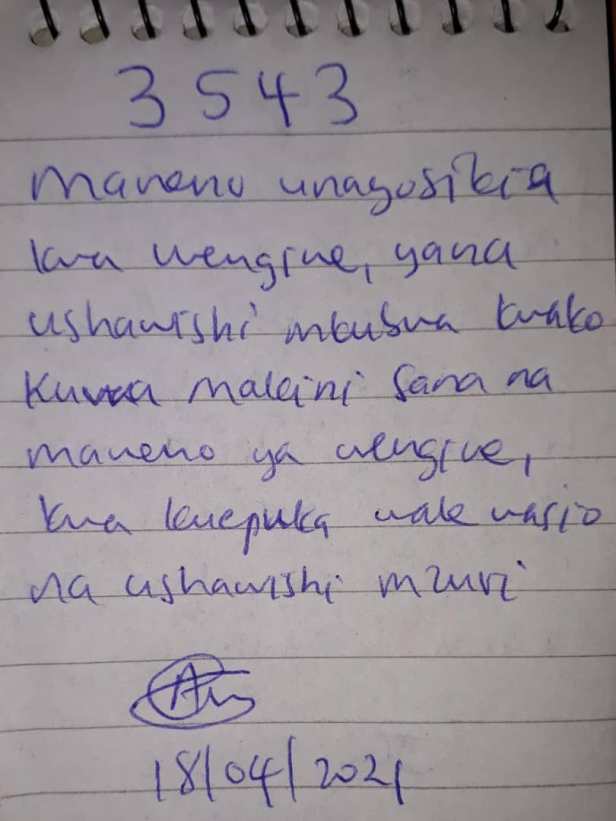 3543
Maneno unayosikia
kwa wengine, yana
ushawishi mkubwa kwako
Kuwa makini sana na
maneno ya wengine,
kwa kuepuka wale wasio
na ushawishi mzuri
18/04/2021